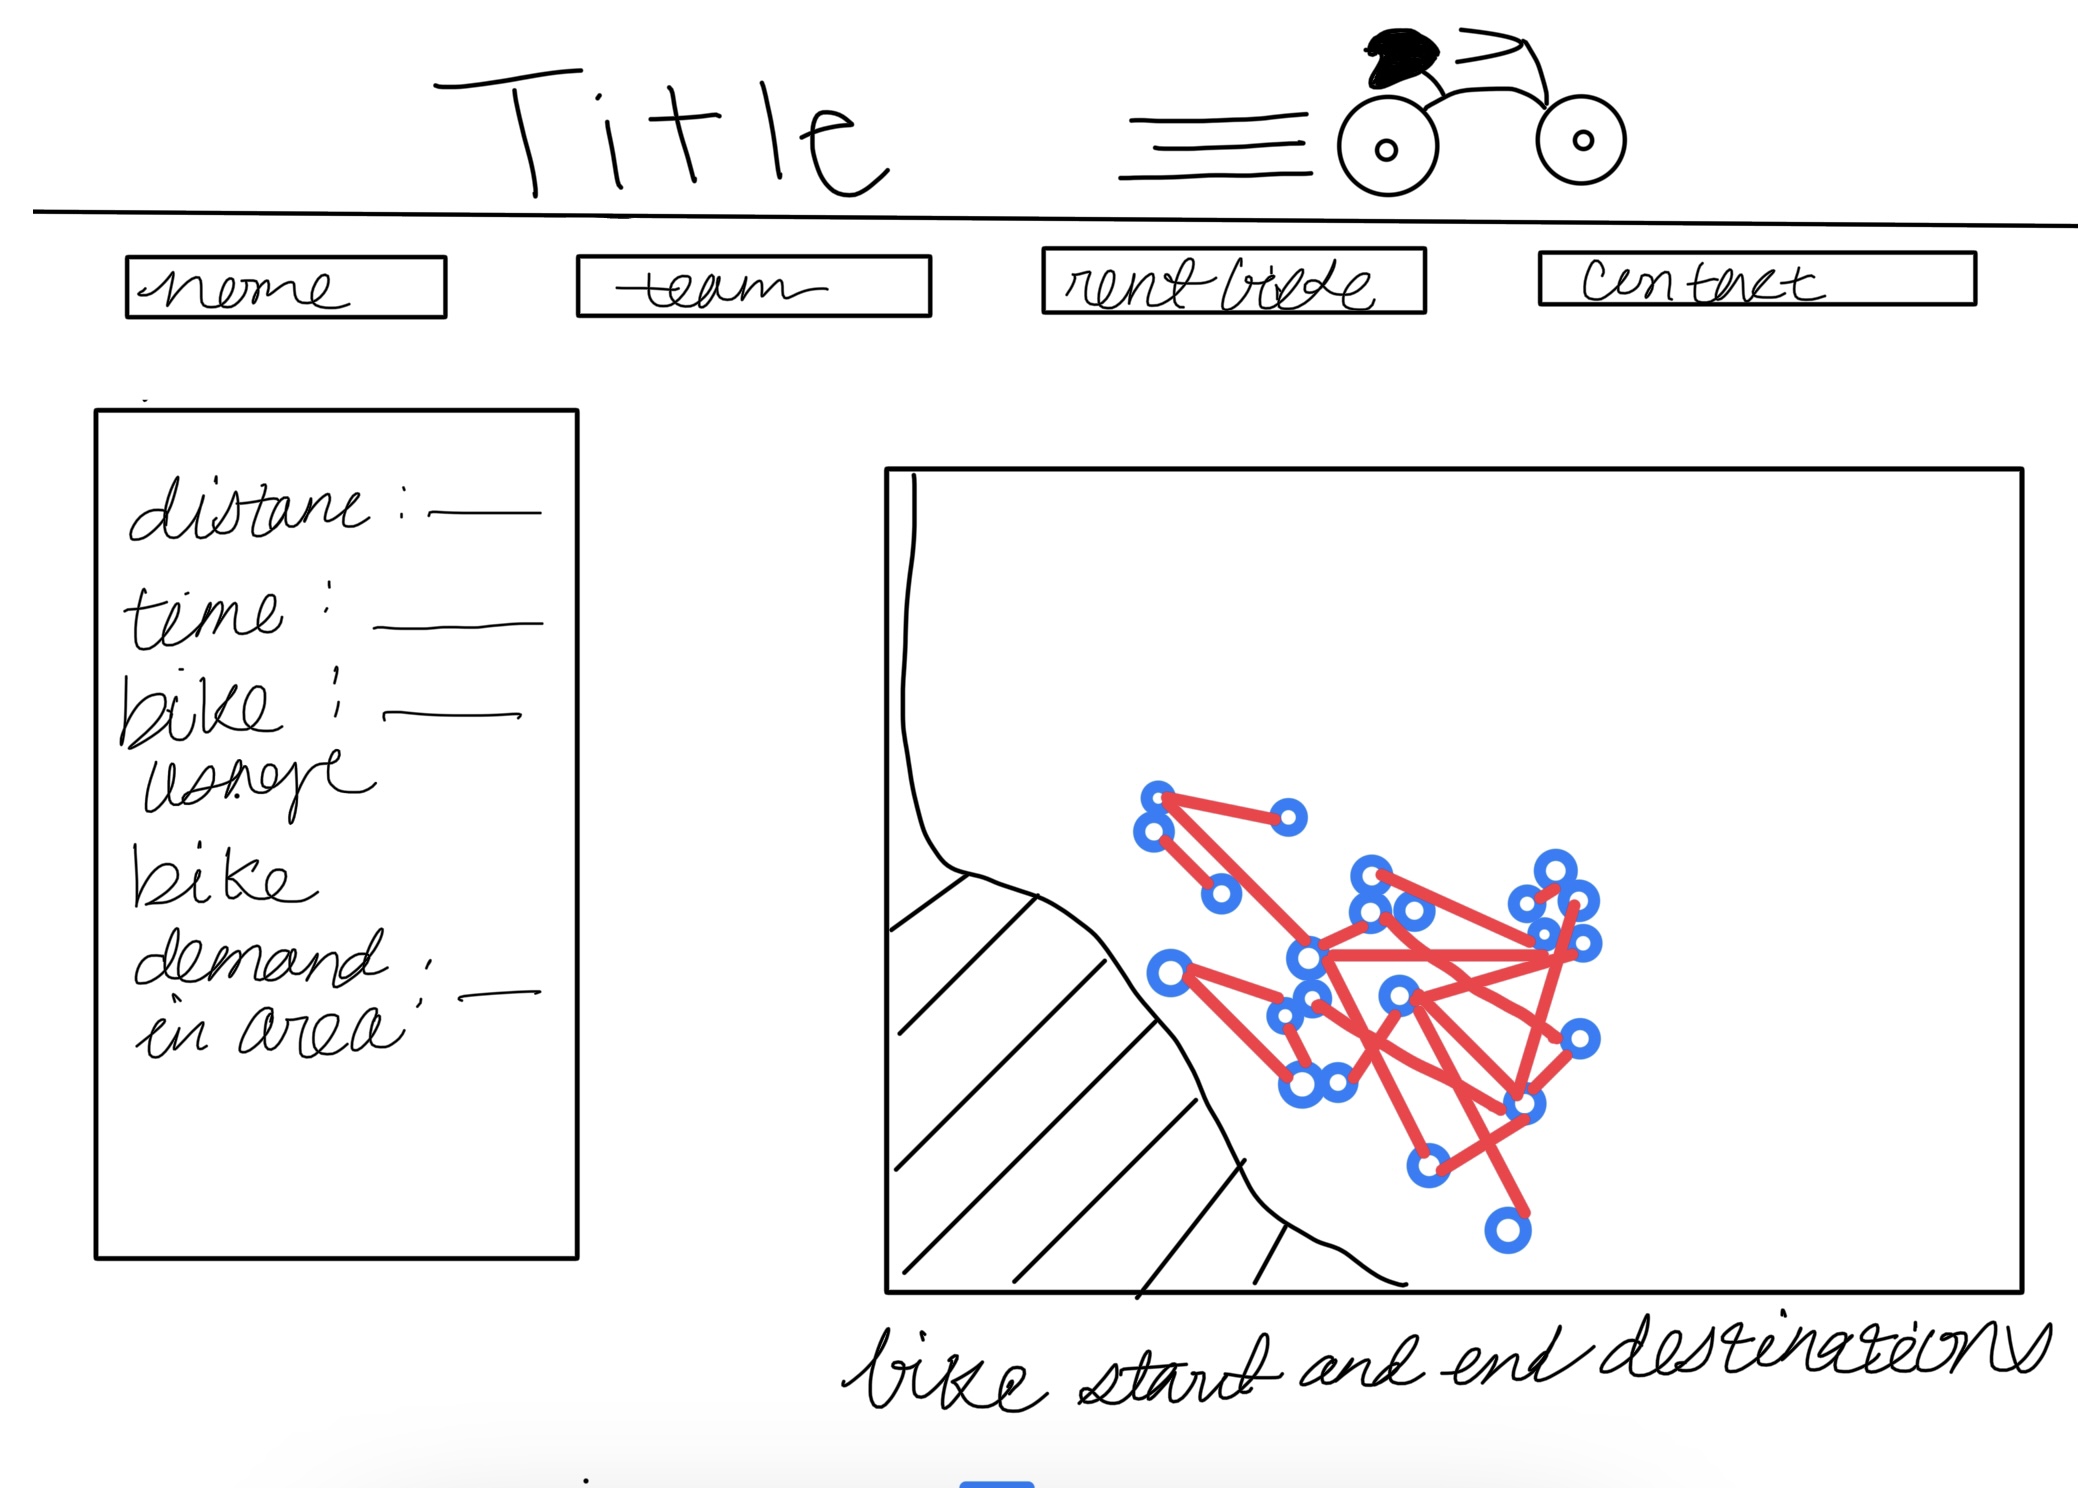 Title
home
team
rent bike
contact
distane :
time :
bike :
usnage
bike
demand :
in area :
bike start and end destinations